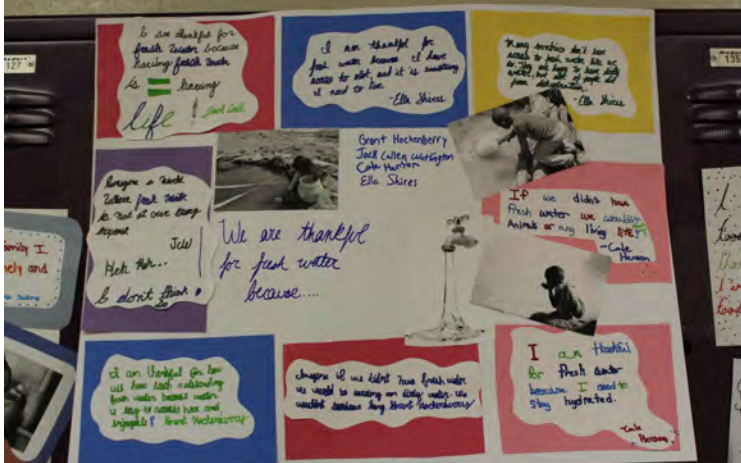 I am thankful for
fresh water because
having fresh water
is = having
life!
I am thankful for
fresh water because I have
access to alot, and it is something
I need to live.
-Ella Shires
Many countries don't have
access to fresh water like we
do. They have to
water, and people
from dehydration.
-Ella Shires
Grant Hockenberry
Jack Cullen Watlington
Cale Henson
Ella Shires
Imagine a World
Where fresh water
is not at our
JCW
Heh Heh...
I don't think
so
We are thankful
for fresh water
because....
If we didn't have
fresh water we wouldn't
Animals or any living
-Cale
Henson
I am thankful for how
we have such outstanding
fresh water because water
is easy to access here and
enjoyable! Grant Hockenberry
Imagine if we didn't have fresh water
we would be dirty water. We
wouldn't long Grant Hockenberry
I am thankful
for fresh water
because I need to
stay hydrated.
-Cale
Henson
family I
and
135